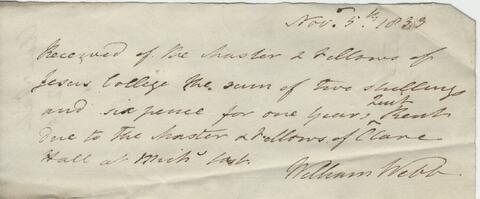 Nov.r 5th 1833
Received of the Master & Fellows of
Jesus College the sum of two shillings
and six pence for one Years Quit Rent
due to the Master & Fellows of Clare
Hall at Mich.s last
William Webb.